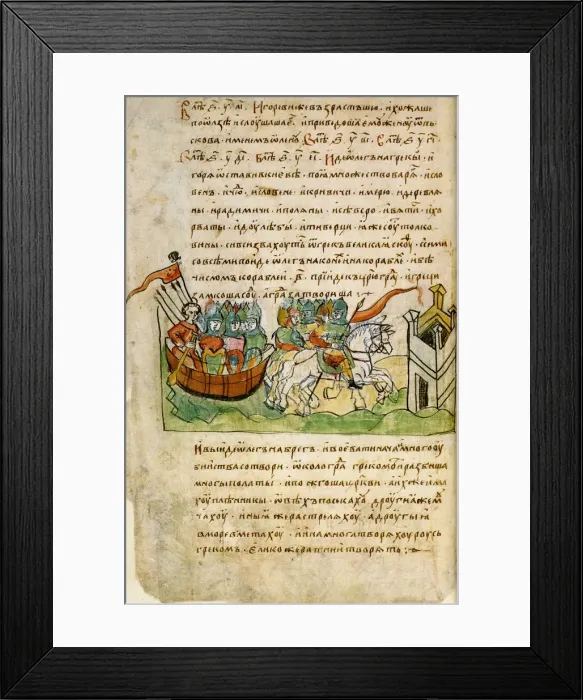 В лѣⷮ ѕ҃ у҃ аі Игореви же възрастъшю. и хожаше
по ѡлзѣ и слоушаше. и приведоша емоу женоу ѿ пль
скова. именемъ ѡленоу В лѣⷮ ѕ҃ у҃ ві. В лѣⷮ ѕ҃ у҃ гі
В лѣⷮ ѕ҃ у҃ ді. В лѣⷮ ѕ҃ у҃ еі. Иде ѡлегъ на грекы. и
горѧ ѡставивъ кіевѣ. поѧ множество варѧⷢ. и сло
венъ. и чюⷣ. и словене. и кривичи. и мерю. и деревлѧ
ны. и радимичи. и полѧны. и сѣверо. и вѧтиⷱ. и хо
рваты. и доулѣбы. и тиверци. ѧже соуⷮ толко
вины. си вси звахоутьⷭ ѿ грекъ великаѧ скоуⷴ. с сими
со всѣми поиде ѡлегъ на конеⷯ и на кораблеⷯ. и бѣ
числомъ кораблей. в҃. прїиде к црюграⷣ. и греци
замкоша соуⷣ. а граⷣ затвориша
И выиде ѡлегъ на брегъ. и воевати нача. и много оу
бийства сотвори. ѡколо граⷣ грекомъ. и разбиша
многы полаты. и пожгоша церкви. а иⷯ же имⷯа
хоу плѣнники. ѡвѣхъ посѣкахоу. дроугиа же моу
чахоу. иныѧ же растрелѧхоу. а дроугыѧ
в море вметахоу. и ина многа творѧхоу роусь
грекомъ. елико же ратнии творѧть